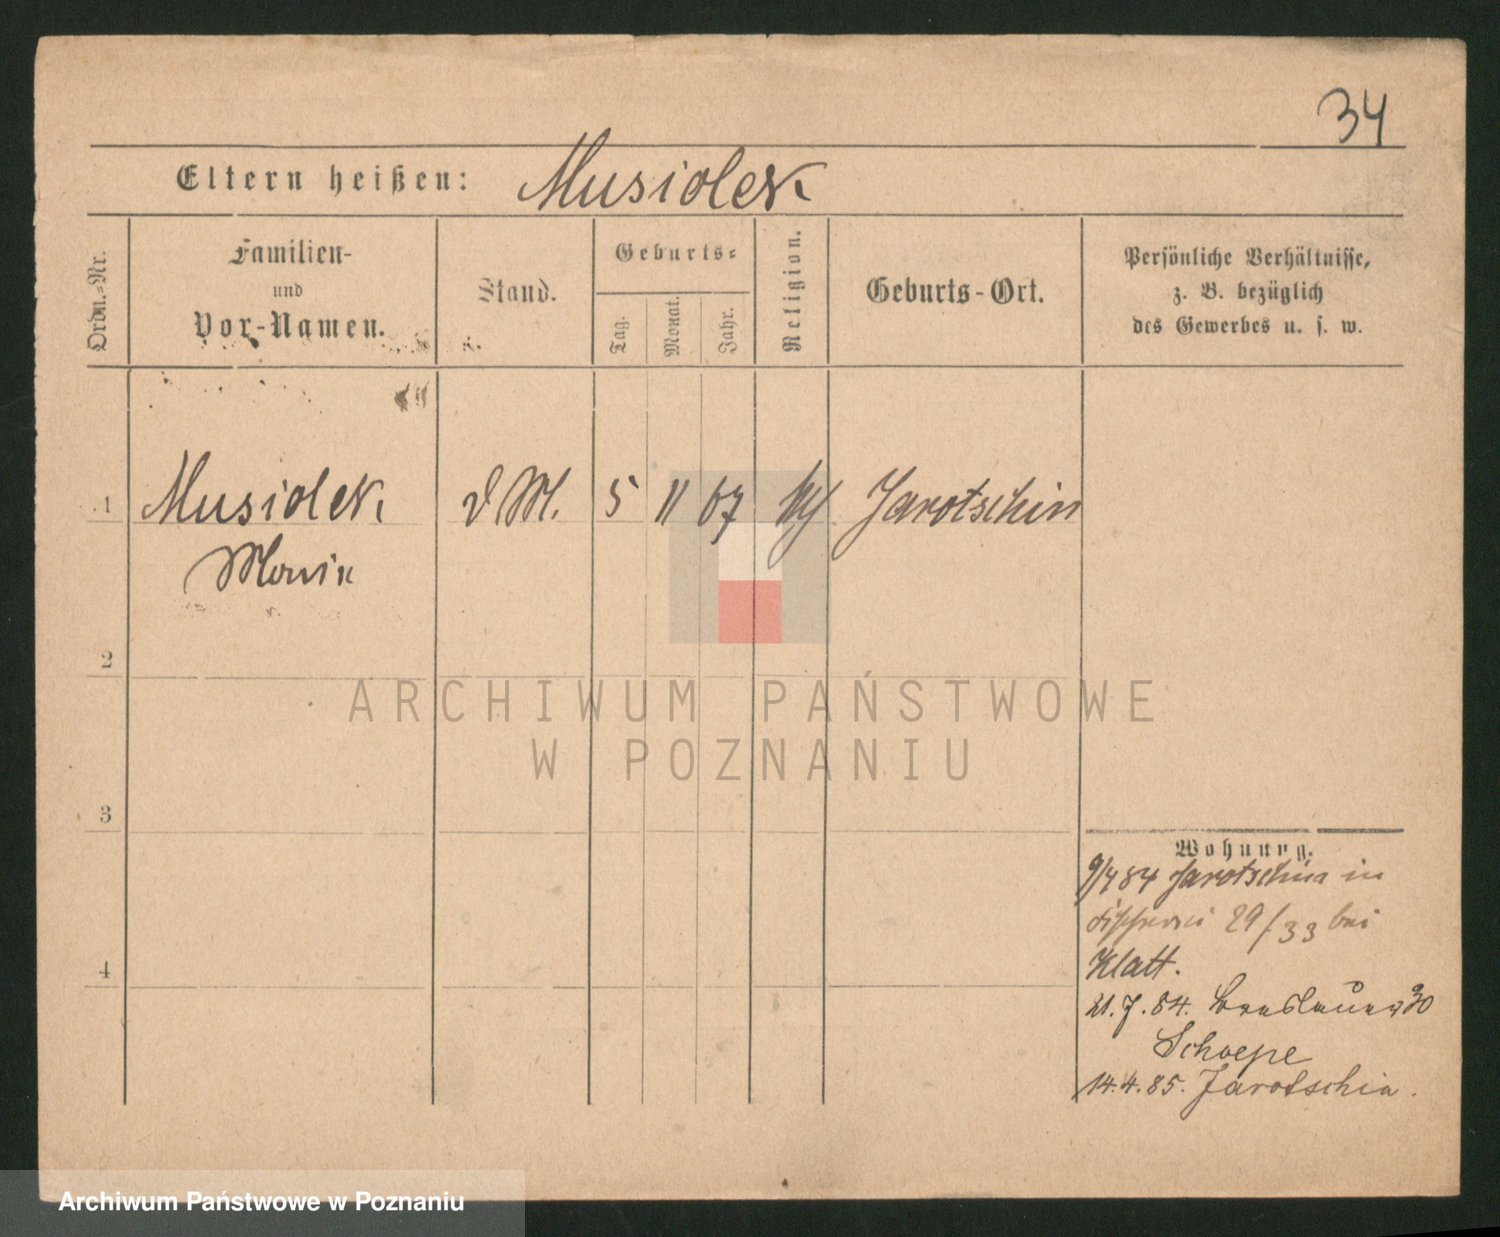 34
Eltern heißen: Musiolek
Ordn.-Nr.
Familien-
und
Vor-Namen.
Stand.
Geburts-
Tag.
Monat.
Jahr.
Religion.
Geburts-Ort.
Persönliche Verhältnisse,
z. B. bezüglich
des Gewerbes u. s. w.
1 Musiolek, d M. 5 11 67 Jarotschin
2
ARCHIWUM PAŃSTWOWE
W POZNANIU
3
Wohnung.
9/7 84 Jarotschin in
29/33 bei
4
Klatt.
21.7.84. Breslauer 30
Schoepe
14.4.85. Jarotschin.
Archiwum Państwowe w Poznaniu